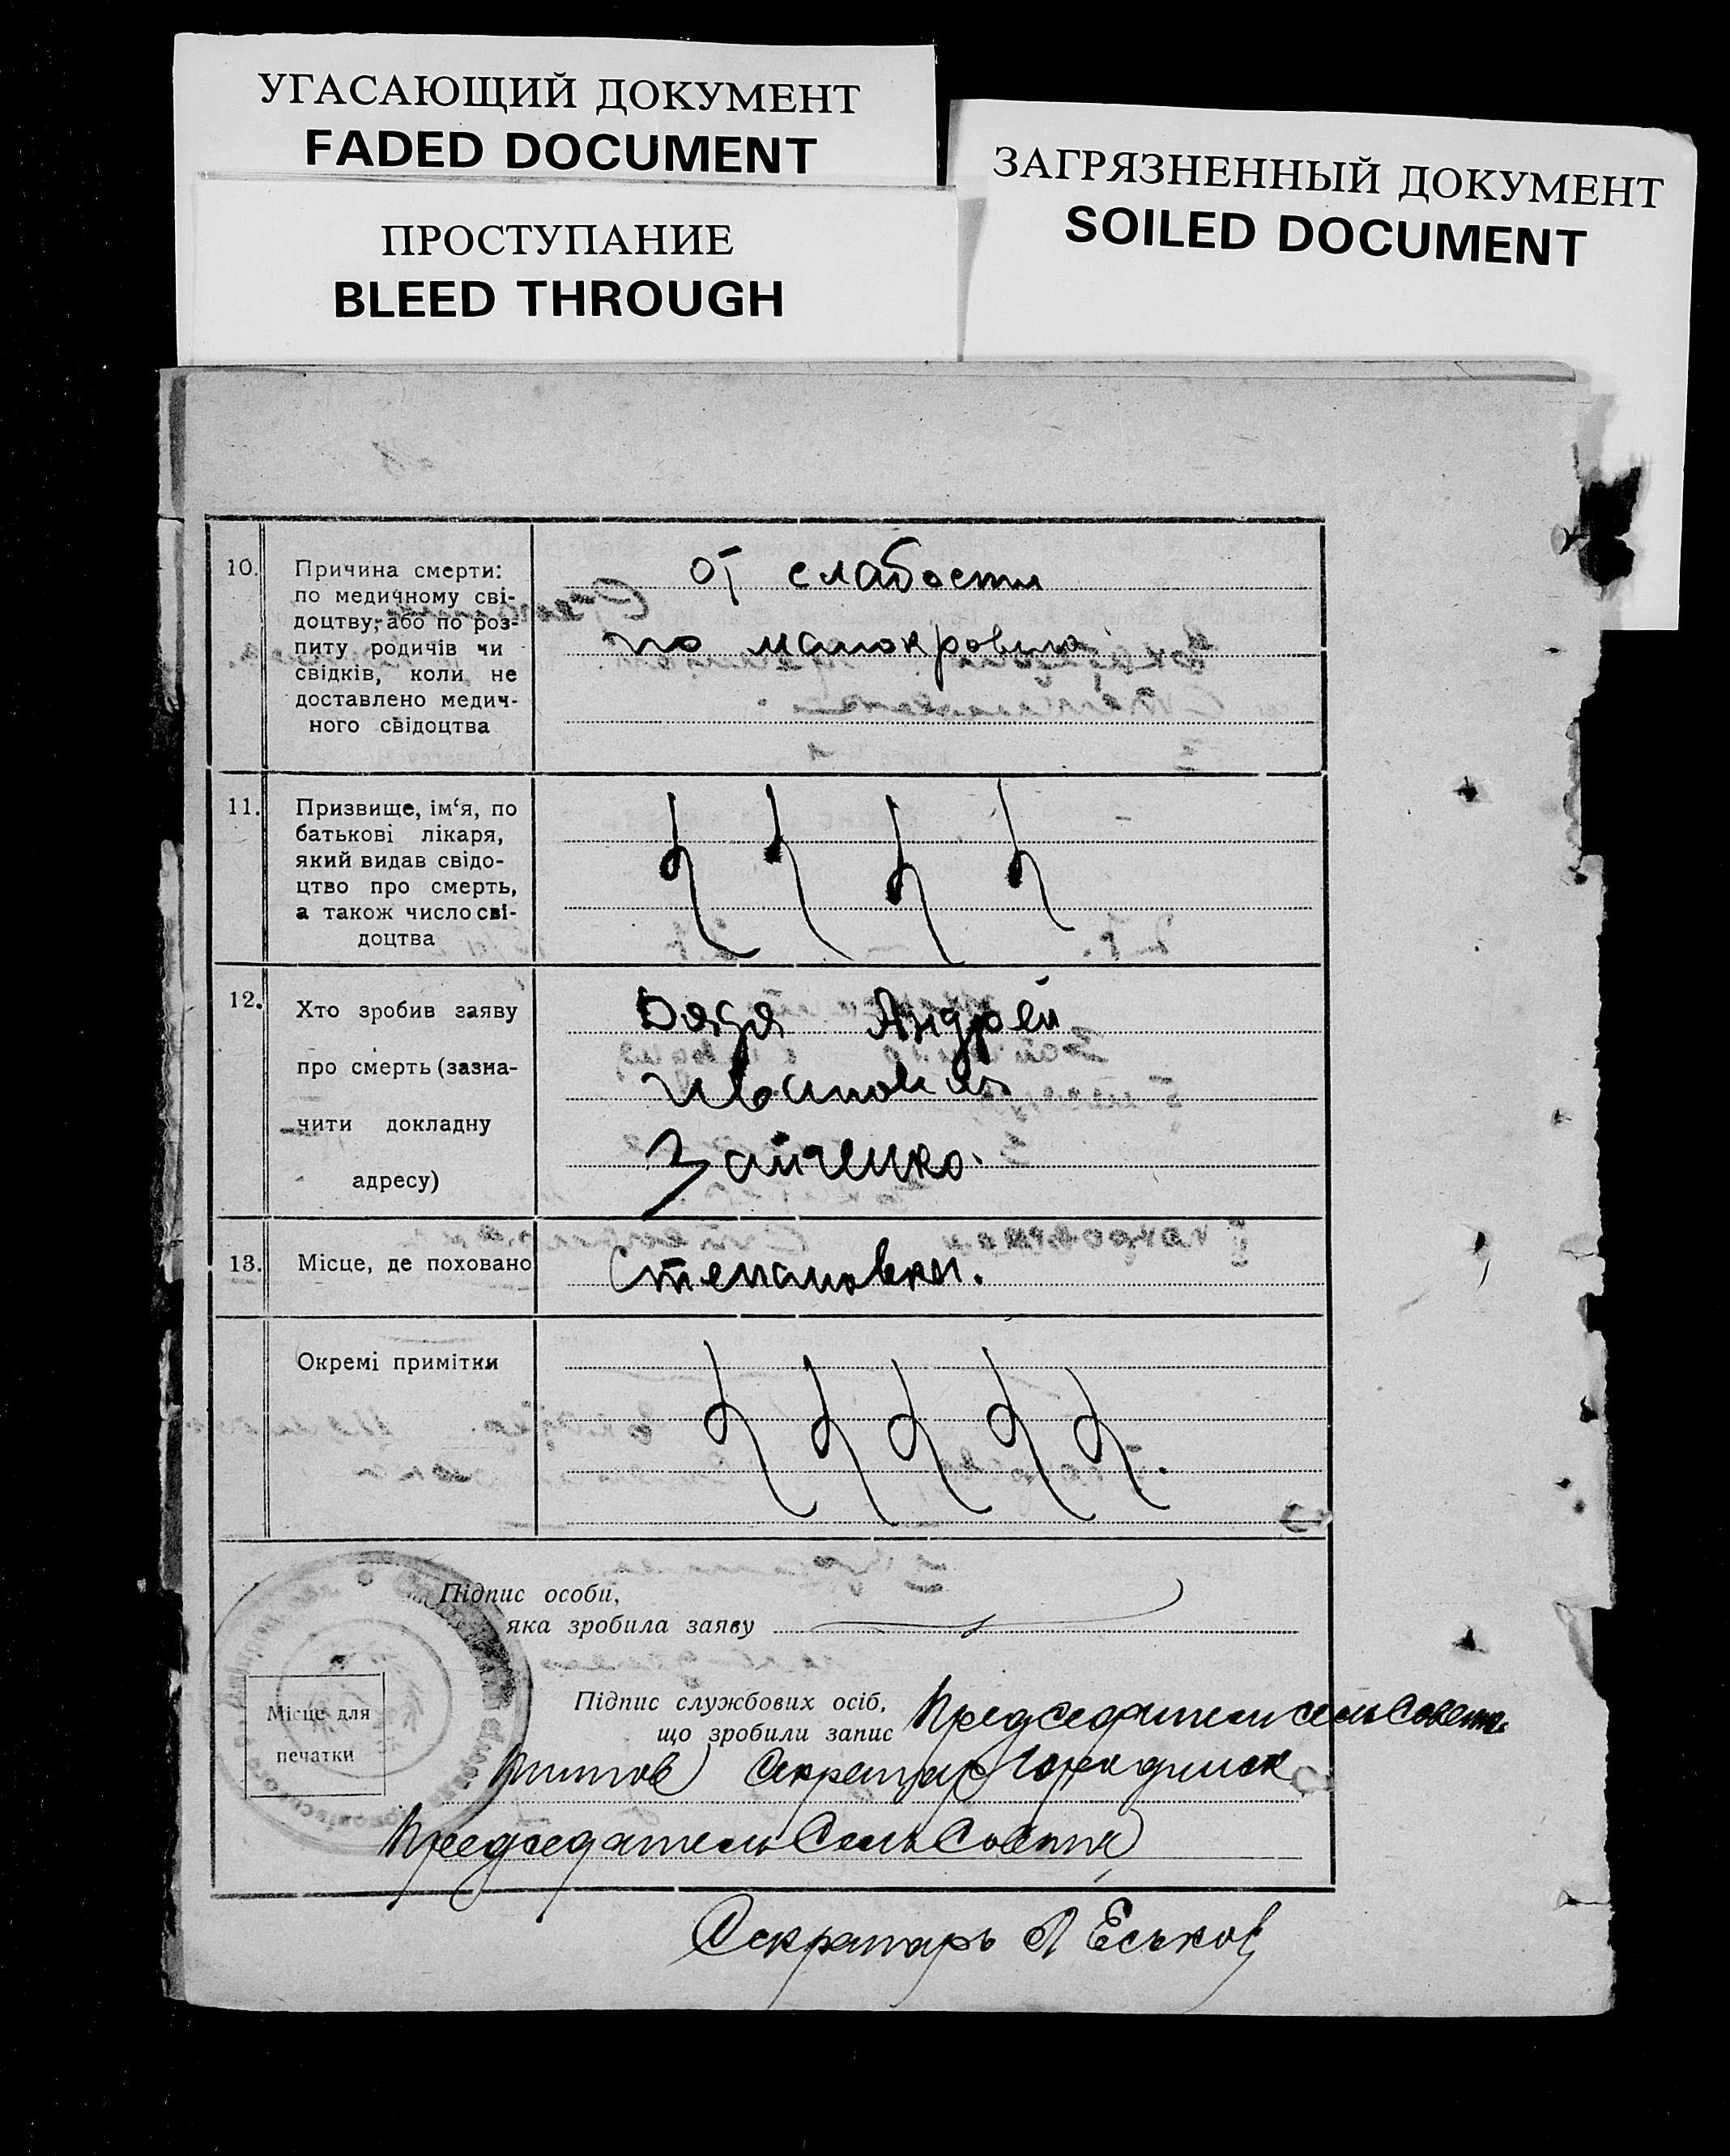 УГАСАЮЩИЙ ДОКУМЕНТ
FADED DOCUMENT
ПРОСТУПАНИЕ
BLEED THROUGH
ЗАГРЯЗНЕННЫЙ ДОКУМЕНТ
SOILED DOCUMENT
10.
Причина смерти:
по медичному сві-
доцтву, або по роз-
питу родичів чи
свідків, коли не
доставлено медич-
ного свідоцтва
от слабости
по малокровию
11.
Призвище, ім‘я, по
батькові лікаря,
який видав свідо-
цтво про смерть,
а також число сві-
доцтва
12.
Хто зробив заяву
про смерть (зазна-
чити докладну
адресу)
Дядя Андрей
Иванович
Зайченко.
13.
Місце, де поховано
Степановки.
Окремі примітки
Підпис особи,
яка зробила заяву
Місце для
печатки
Підпис службових осіб,
що зробили запис
Председатель сельсовета
Секретар
Председатель СельСовета
Секретарь Л Еськов